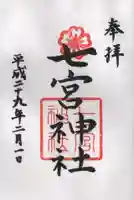 奉拝
七宮神社
平成二十九年二月一日